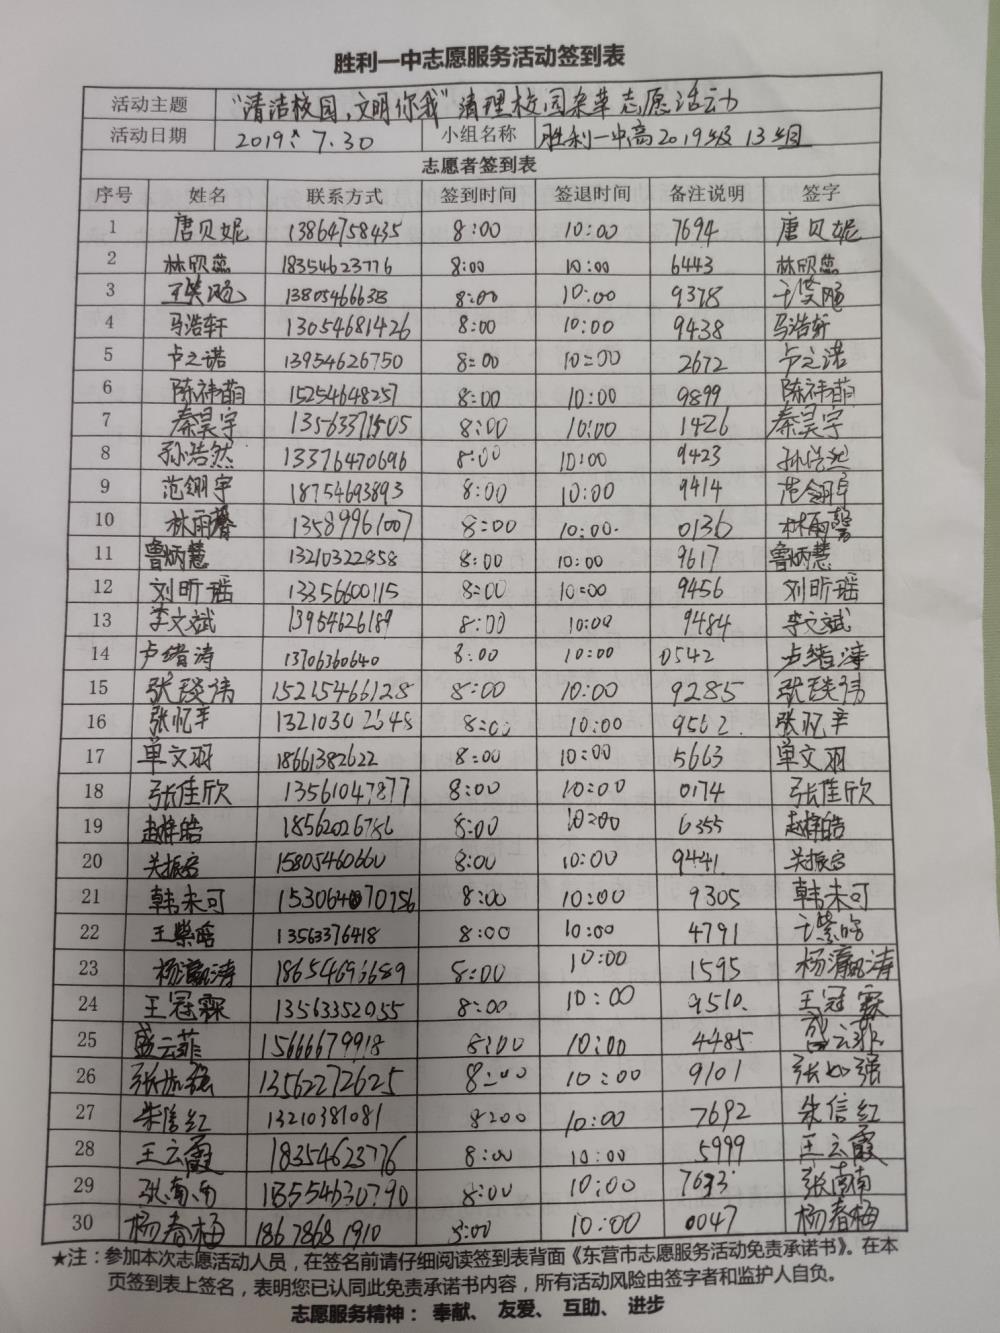 胜利一中志愿服务活动签到表
活动主题 "清洁校园、文明你我"清理校园杂草志愿活动
活动日期 2019.7.30 小组名称 胜利一中高2019级13组
志愿者签到表
序号 姓名 联系方式 签到时间 签退时间 备注说明 签字
1 唐贝妮 13864758435 8:00 10:00 7694 唐贝妮
2 林欣蕊 18354623776 8:00 10:00 6443 林欣蕊
3 8:00 10:00 9378
4 马浩轩 13054681426 8:00 10:00 9438 马浩轩
5 卢之诺 13954626750 8:00 10:00 2672 卢之诺
6 陈祎萌 15254648257 8:00 10:00 9899 陈祎萌
7 秦昊宇 13563371505 8:00 10:00 1426 秦昊宇
8 孙浩然 13376470696 8:00 10:00 9423 孙浩然
9 范翎宇 18754693893 8:00 10:00 9414 范翎宇
10 林雨馨 13589961007 8:00 10:00 0136 林雨馨
11 鲁炳慧 13210322858 8:00 10:00 9617 鲁炳慧
12 刘昕瑶 13356600115 8:00 10:00 9456 刘昕瑶
13 李文斌 13954626189 8:00 10:00 9484 李文斌
14 卢绪涛 13706360640 8:00 10:00 0542 卢绪涛
15 张琰祎 15215466128 8:00 10:00 9285 张琰祎
16 张忆辛 13210302648 8:00 10:00 9562 张忆辛
17 单文羽 18661382622 8:00 10:00 5663 单文羽
18 张佳欣 13561047877 8:00 10:00 0174 张佳欣
19 赵梓皓 18562026786 8:00 10:00 6355 赵梓皓
20 关振宫 15805460660 8:00 10:00 9441 关振宫
21 韩未可 153064070756 8:00 10:00 9305 韩未可
22 王紫晗 13563376418 8:00 10:00 4791 王紫晗
23 杨瀛涛 18654696689 8:00 10:00 1595 杨瀛涛
24 王冠霖 13563352055 8:00 10:00 9510 王冠霖
25 盛云菲 15666679918 8:00 10:00 4485 盛云菲
26 张如强 13562272625 8:00 10:00 9101 张如强
27 朱信红 13210381081 8:00 10:00 7692 朱信红
28 王云霞 18354623776 8:00 10:00 5999 王云霞
29 张南南 8:00 10:00 张南南
30 杨春梅 18678681910 8:00 10:00 0047 杨春梅
★注：参加本次志愿活动人员，在签名前请仔细阅读签到表背面《东营市志愿服务活动免责承诺书》。在本
页签到表上签名，表明您已认同此免责承诺书内容，所有活动风险由签字者和监护人自负。
志愿服务精神： 奉献、 友爱、 互助、 进步